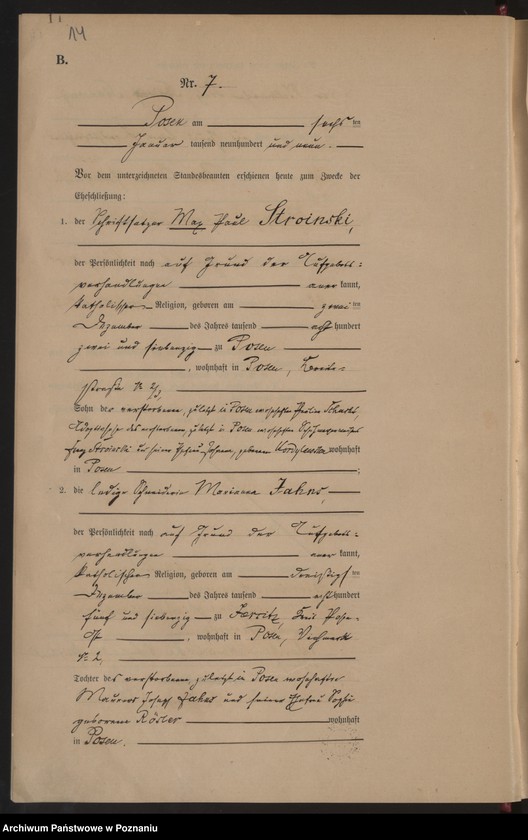 14
B.
Nr. 7.
Posen am sechsten
Januar tausend neunhundert und neun.
Vor dem unterzeichneten Standesbeamten erschienen heute zum Zwecke der
Eheschließung:
1. der Schriftsetzer Max Paul Stroinski,
der Persönlichkeit nach auf Grund der Aufgebots-
verhandlungen anerkannt,
katholischer Religion, geboren am zweiten
Dezember des Jahres tausend achthundert
zwei und siebenzig zu Posen
, wohnhaft in Posen, Breite-
straße № 2/3,
Sohn der verstorbenen, zuletzt in Posen wohnhaften
Adoptivsohn des verstorbenen, zuletzt in Posen wohnhaften
Stroinski und seiner Ehefrau geborenen wohnhaft
in Posen ;
2. die ledige Schneiderin Marianna Jahns,
der Persönlichkeit nach auf Grund der Aufgebots-
verhandlungen anerkannt,
katholischer Religion, geboren am dreißigsten
Dezember des Jahres tausend achthundert
fünf und siebenzig zu Jersitz, Kreis Posen-
Ost , wohnhaft in Posen,
№ 2,
Tochter des verstorbenen, zuletzt in Posen wohnhaften
Maurers Josef Jahns und seiner Ehefrau Sophie
geborenen Rösler wohnhaft
in Posen.
Archiwum Państwowe w Poznaniu